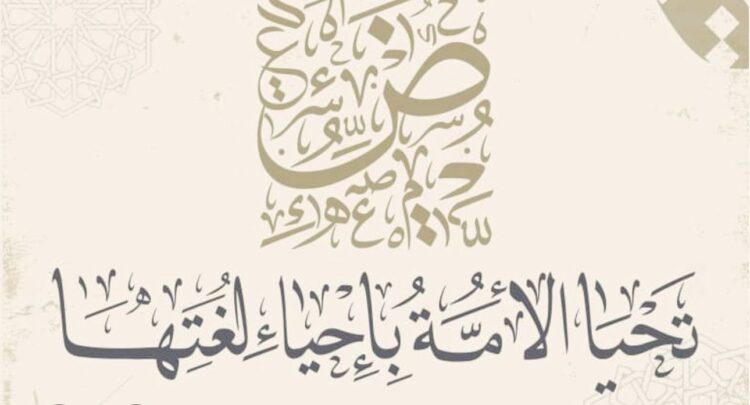 تَحْيَا الأُمَّةُ بِإِحْيَاءِ لُغَتِهَا